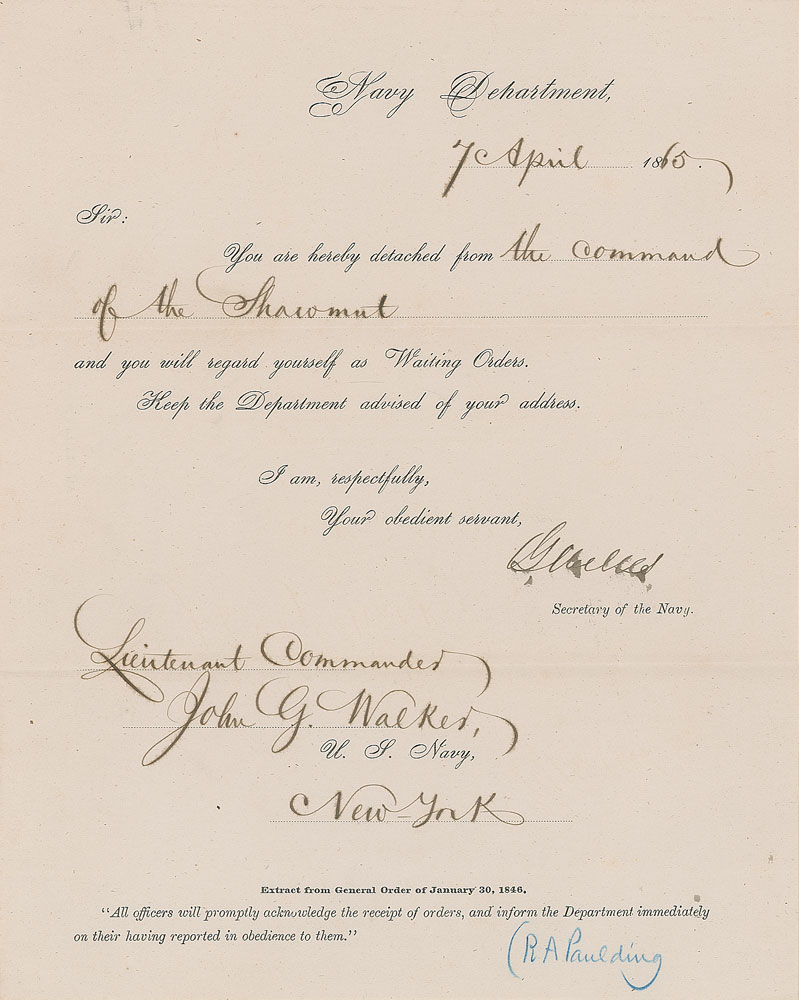 Navy Department,
7 April 1865.
Sir:
You are hereby detached from the command
of the Shawmut
and you will regard yourself as Waiting Orders.
Keep the Department advised of your address.
I am, respectfully,
Your obedient servant,
G Welles
Secretary of the Navy.
Lieutenant Commander
John G. Walker,
U. S. Navy,
New-York
Extract from General Order of January 30, 1846.
"All officers will promptly acknowledge the receipt of orders, and inform the Department immediately
on their having reported in obedience to them."
(R A Paulding